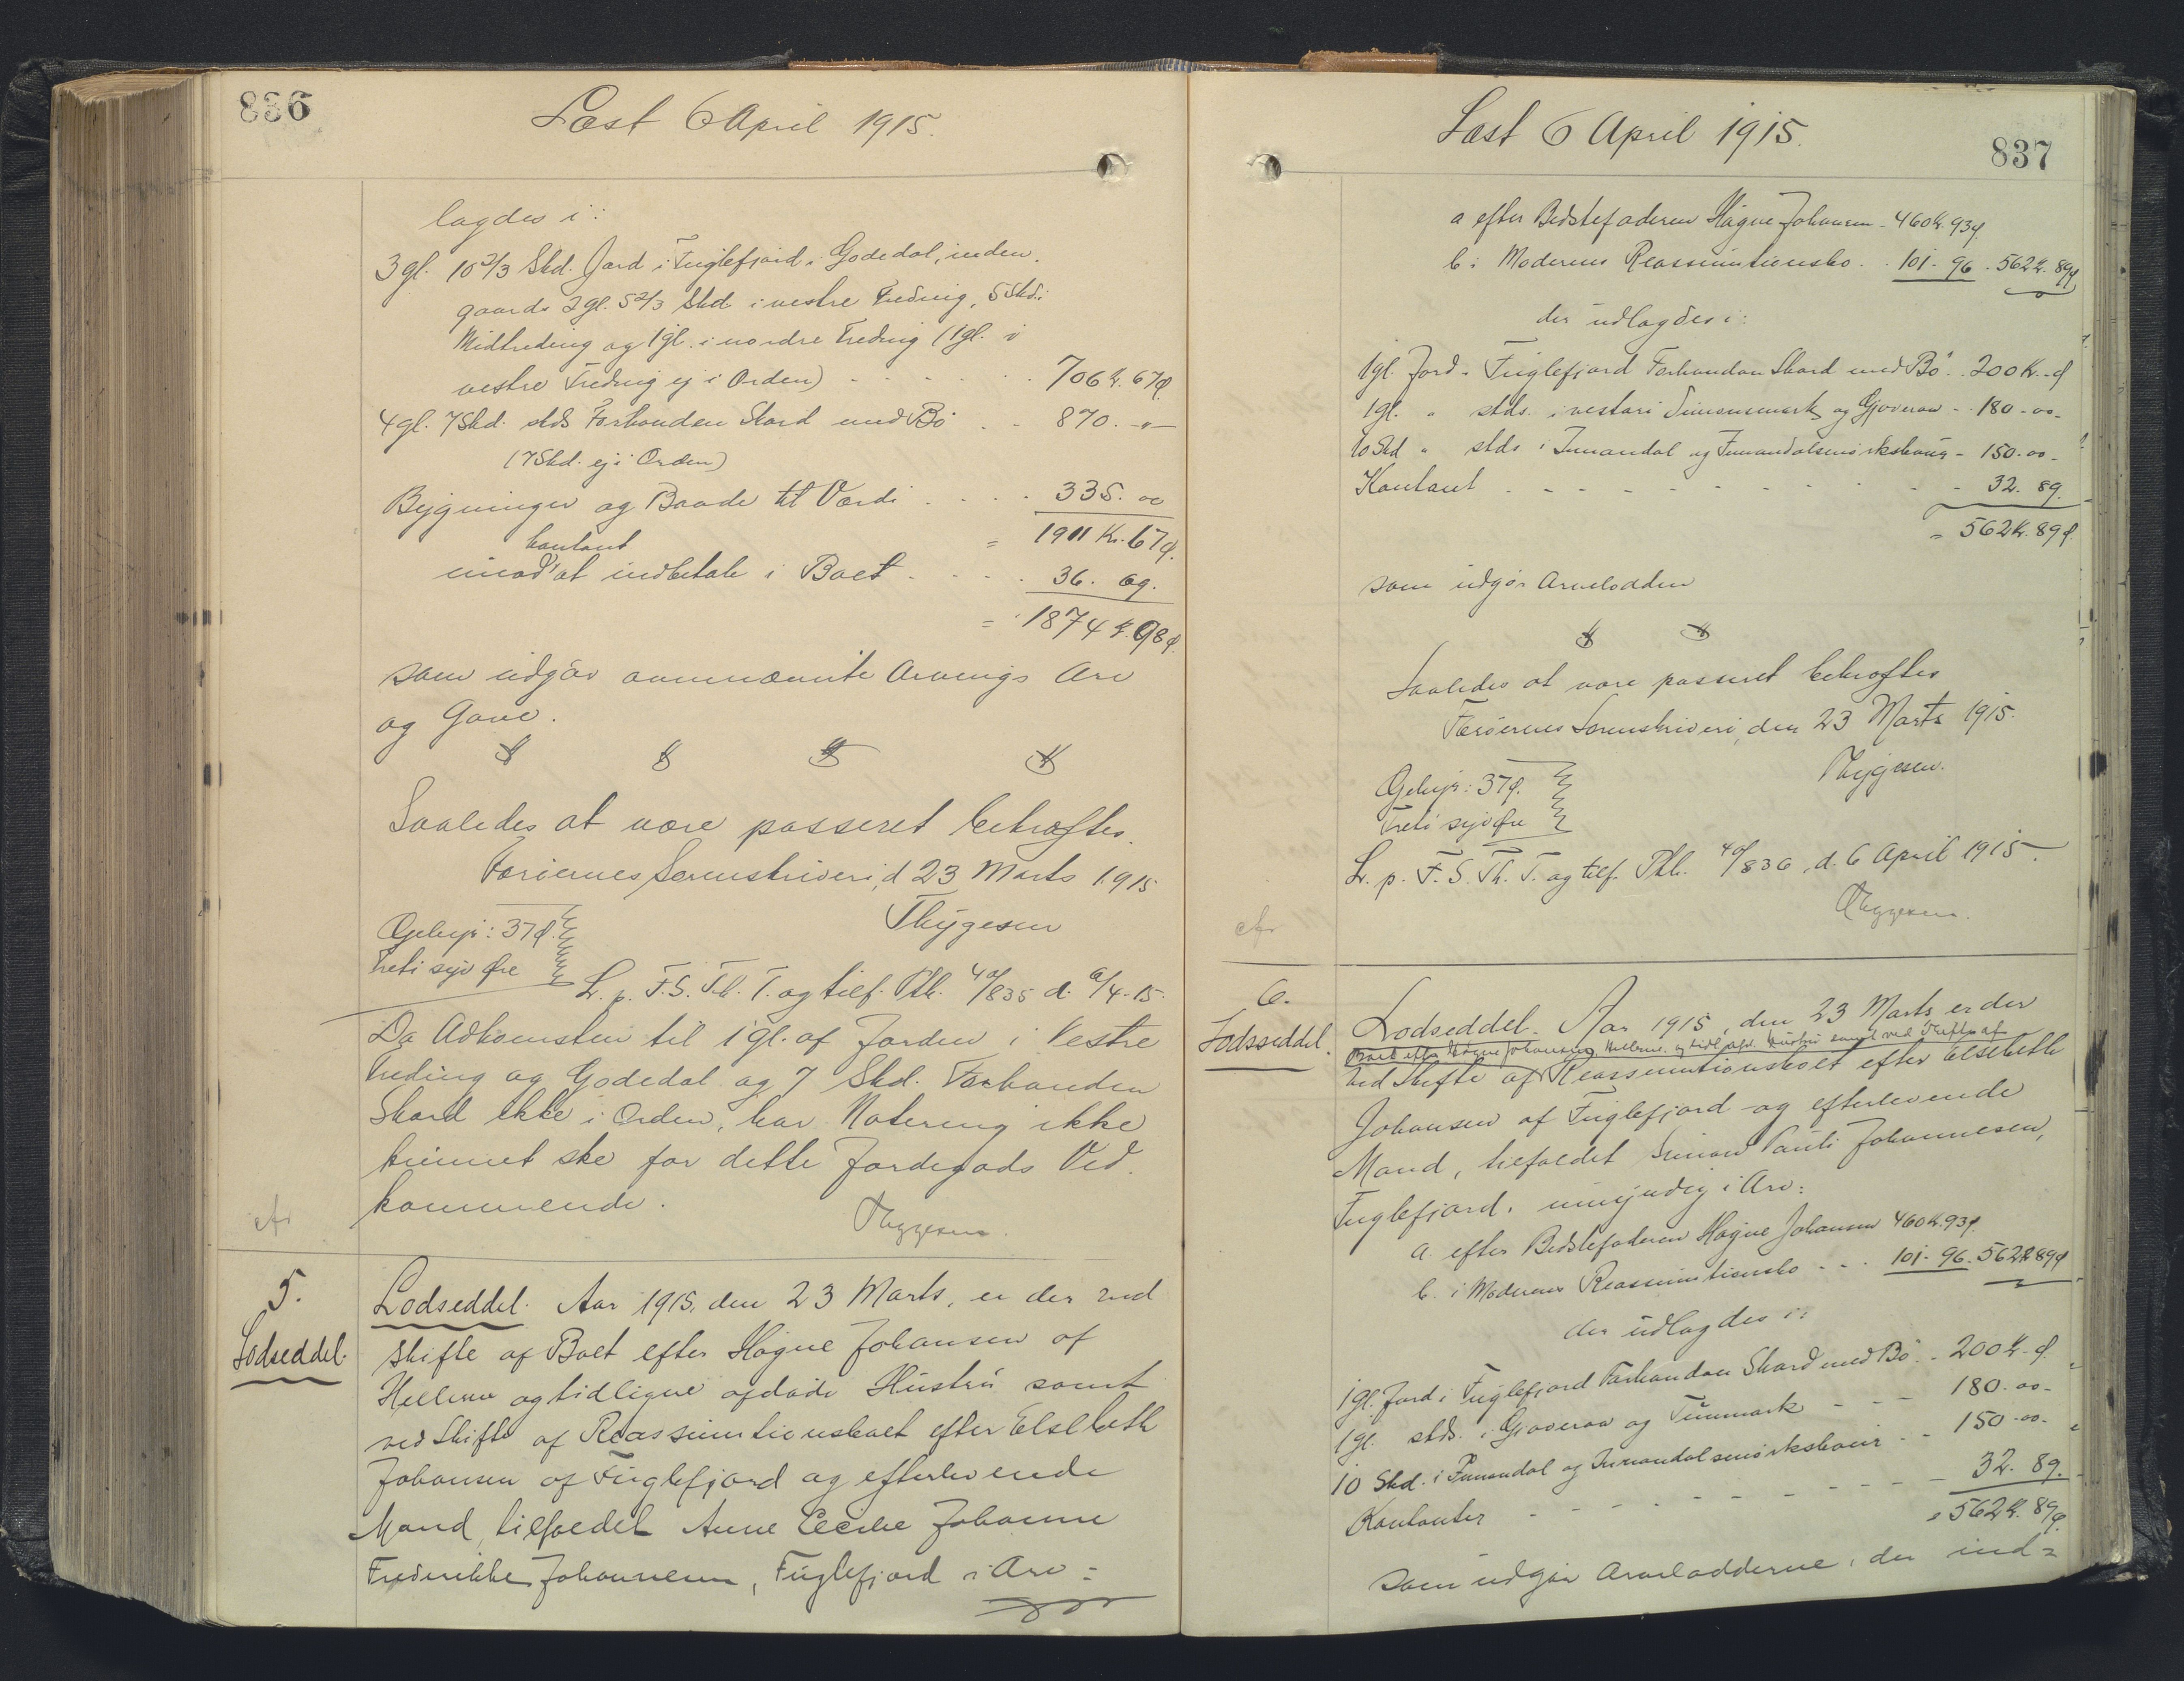 836
Læst 6 April 1915.
lagdes i:
3 gl. 10 2/3 Skd. Jord i Fuglefjord i Godedal, inden-
gaards 2 gl. 5 2/3 Skd. i vestre Treding, 5 Skd. i
Midtreding og 1 gl. i nordre Treding (1 gl. i
vestre Treding ej i Orden) - - - - - 706 K. 67 Ø.
4 gl. 7 Skd. stds Forhondan Skard med Bø . . 870. -"-
(7 Skd. ej i Orden)
Bygninger og Baade til Værdi . . . . 335. 00
= 1911 Kr. 67 Ø.
kontant
imod at indbetale i Boet . . . . 36. 69.
= 1874 K. 98 Ø.
som udgør ovennævnte Arvings Arv
og Gave.
Saaledes at være passeret bekræftes.
Færøernes Sorenskriveri, d 23 Marts 1915
Thygesen
Gebyr: 37 Ø.
Treti syv Øre
L. p. F. S. Th. T. og tilf. Ptb. 40/835 d. 6/4-15.
Da Adkomsten til 1 gl. af Jorden i Vestre
Treding og Godedal og 7 Skd. Forhondan
Skard ikke i Orden, har Notering ikke
kunnet ske for dette Jordegods Ved-
kommende.
Thygesen.
5.
Lodseddel.
Lodseddel. Aar 1915, den 23 Marts, er der ved
Skifte af Boet efter Høgne Johansen af
Hellerne og tidligere afdøde Hustru samt
ved Skifte af Reassumtionsboet efter Elsebeth
Johansen af Fuglefjord og efterlevende
Mand, tilfaldet Anne Cecilie Johanne
Frederikke Johannesen, Fuglefjord i Arv:
Læst 6 April 1915.
837
a efter Bedstefaderen Høgne Johansen - 460 K. 93 Ø.
b i Moderens Reassumtionsbo . . 101 - 96 . 562 K. 89 Ø
der udlagdes i:
1 gl. Jord i Fuglefjord Forhondan Skard med Bø . . 200 Kr. - Ø
1 gl. " stds. i vestari Simonsmark og Gjoveraa - - 180 - 00 -
10 Skd " stds i Innandal og Innandalsmørkshaug - 150 - 00 -
Kontant - - - - - - - - - 32. 89.
= 562 K. 89 Ø.
som udgør Arvelodden
Saaledes at være passeret bekræftes
Færøernes Sorenskriveri, den 23 Marts 1915.
Thygesen.
Gebyr: 37 Ø.
Treti syv Øre
L. p. F. S. Th. T. og tilf. Ptb. 40/836, d. 6 April 1915.
Thygesen.
6.
Lodsseddel.
Lodseddel. Aar 1915, den 23 Marts er der
Boet efter Høgne Johansen, Hellerne og tidl. afd. Hustru samt ved Skifte af
ved Skifte af Reassumtionsboet efter Elsebeth
Johansen af Fuglefjord og efterlevende
Mand, tilfaldet Simon Pauli Johannesen,
Fuglefjord, umyndig i Arv:
a. efter Bedstefaderen Høgne Johansen 460 K. 93 Ø.
b. i Moderens Reassumtionsbo - - - 101 - 96. 562 K 89 Ø
der udlagdes i:
1 gl. Jord i Fuglefjord Forhondan Skard med Bø - - 200 K. - Ø.
1 gl. stds. i Gjoveraa og - - - 180. 00 -
10 Skd. i Innandal og Innandalsmørkshauir - - 150 - 00 -
Kontanter - - - - - - - - 32. 89.
= 562 K. 89 Ø.
som udgør Arvelodderne, der ind=